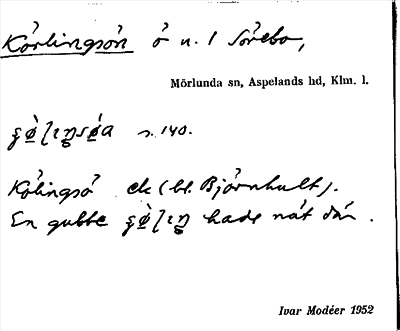 Kö́rlingsö́n ö n. 1 Sörebo,
Mörlunda sn, Aspelands hd, Klm. l.
s. 140.
Kölingsö ek (bl. Björnhult).
En gubbe hade nåt där.
Ivar Modéer 1952